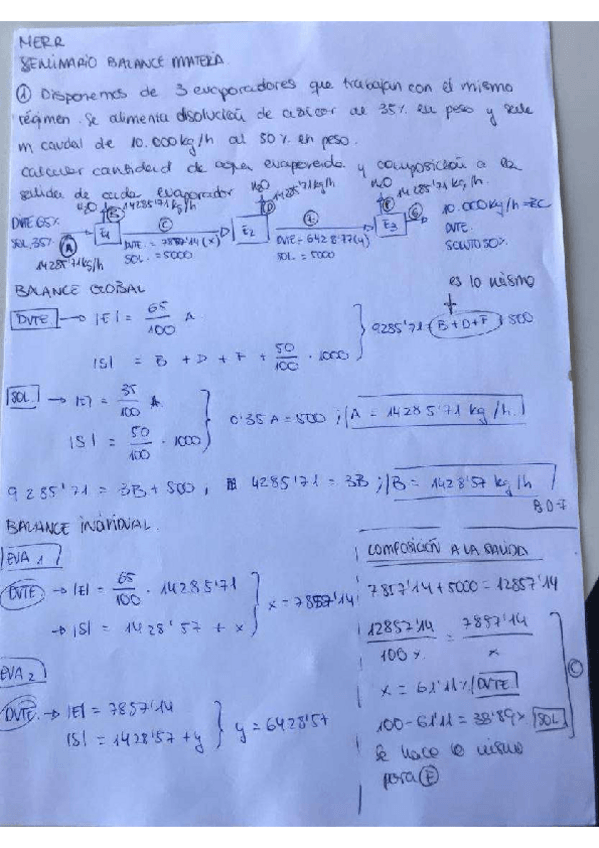 MERR
SEMINARIO BALANCE MATERIA
① Disponemos de 3 evaporadores que trabajan con el mismo
régimen. Se alimenta disolución de azúcar al 35% en peso y sale
un caudal de 10.000 kg/h al 50% en peso.
calcular cantidad de agua evaporada y composición a la
salida de cada evaporador
H2O 1428'57 kg/h
H2O 1428'57 kg/h
H2O 1428'57 kg/h
DVTE 65%
SOL. 35%
A
14285'71 kg/h
B
E1
C
DVTE = 7857'14 (x)
SOL. = 5000
D
E2
DVTE = 6428'77 (y)
SOL. = 5000
F
E3
G
10.000 kg/h
DVTE.
SOLUTO 50%
BALANCE GLOBAL
es lo mismo
DVTE → |E| = 65/100 A
|S| = B + D + F + 50/100 · 1000
9285'71 = B+D+F + 500
SOL. → |E| = 35/100 A
|S| = 50/100 · 1000
0'35 A = 500 ; A = 14285'71 kg/h.
9285'71 = 3B + 500 ; 4285'71 = 3B ; B = 1428'57 kg/h
B D F
BALANCE INDIVIDUAL.
EVA 1
DVTE → |E| = 65/100 · 14285'71
→ |S| = 1428'57 + x
x = 7857'14
EVA 2
DVTE. → |E| = 7857'14
|S| = 1428'57 + y
y = 6428'57
COMPOSICIÓN A LA SALIDA
7857'14 + 5000 = 12857'14
12857'14/100% = 7857'14/x
x = 61'11% DVTE
100 - 61'11 = 38'89% SOL
C
Se hace lo mismo
para E